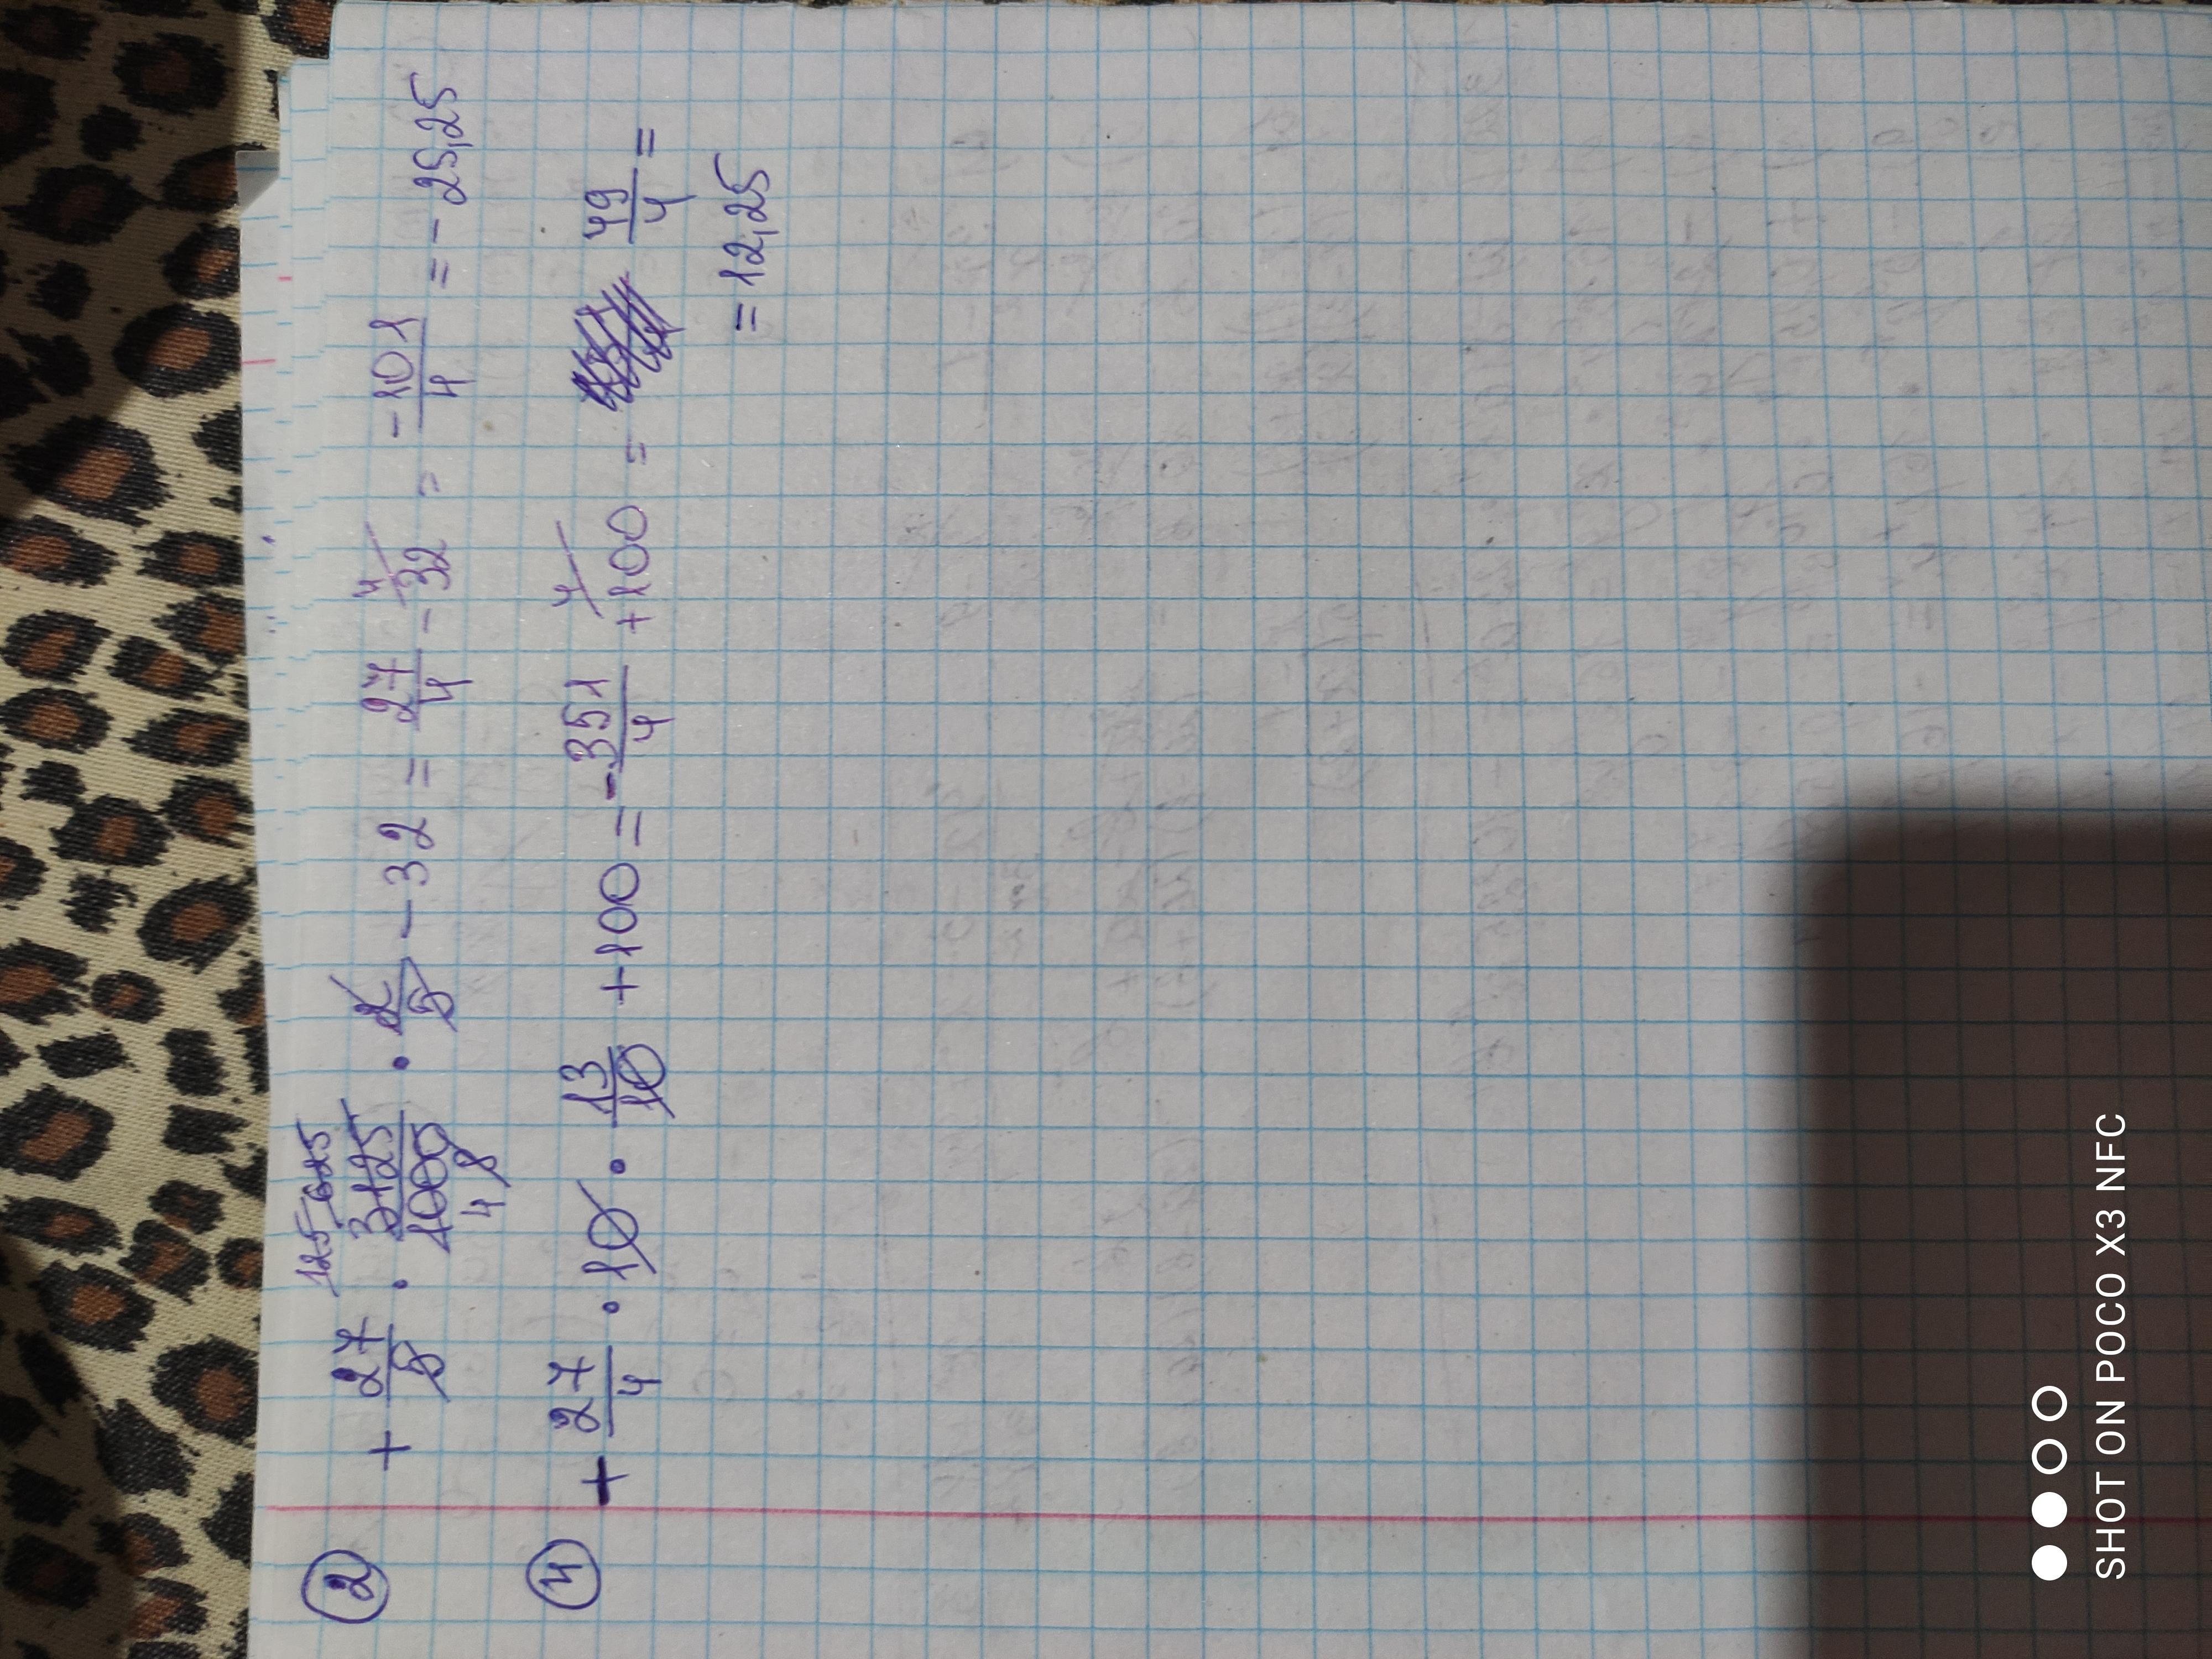 ② + 27/5 · 3125/1000 · 2/5 - 32 = 27/4 - 32 = -101/4 = - 25,25
125 625
4 8
4
④ + 27/4 · 10 · 13/10 + 100 = -351/4 + 100 = 49/4 =
4
= 12,25
SHOT ON POCO X3 NFC